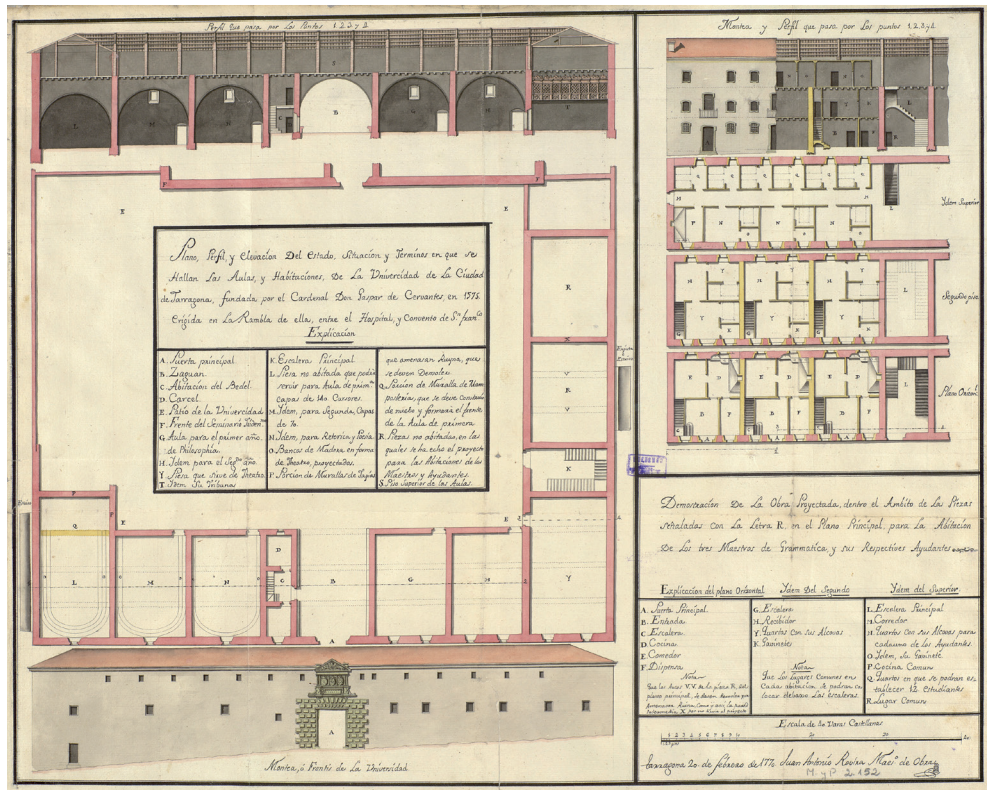 Perfil que pasa por Los Puntos 1.2.3. y 4.
Plano, Perfil, y Elevacion Del Estado, Situacion y Terminos en que se
Hallan Las Aulas, y Habitaciones, De La Univercidad de La Ciudad
de Tarragona, fundada, por el Cardenal Don Gaspar de Cervantes, en 1575.
Erigida en La Rambla de ella, entre el Hospital, y Convento de Sn. franco.
Explicacion
A. Puerta principal
B. Zaguan
C. Abitacion del Bedel
D. Carcel
E. Patio de la Univercidad
F. Frente del Seminario Triden.
G. Aula para el primer año.
de Philosophia.
H. Idem para el Segdo. año.
Y. Piesa que sirve de Theatro
T. Idem Su Tribuna
K. Escalera Principal
L. Piesa no abitada que podria
servir para Aula de prima.
capas de 140 Cursores.
M. Idem, para Segunda, Capas
de 70.
N. Idem, para Retorica y Poesia
O. Bancos de Madera en forma
de Theatro, proyectados.
P. Porcion de Murallas de Tapia
que amenasan Ruyna, que
se deven Demoler
Q. Porcion de Muralla de Mam
posteria, que se deve Construir
de nuebo y formará el frente
de la Aula de primera
R. Piezas no abitadas, en las
quales se ha echo el proyecto
para las Abitaciones de los
Maestros y Ayudantes.
S. Piso Superior de las Aulas.
Montea, ó Frontis de La Universidad
Montea y Perfil que pasa por Los puntos 1.2.3. y 4.
Ydem Superior
Segundo piso
Plano Orizontal
Demostracion De La Obra Proyectada, dentro el Ambito de Las Piezas
señaladas con La Letra R, en el Plano Principal, para La Abitacion
De Los tres Maestros de Grammatica, y sus Respectives Ayudantes
Explicacion del plano Orizontal
A. Puerta Principal.
B. Entrada
C. Escalera
D. Cocina
E. Comedor
F. Dispensa
Nota
Ydem Del Segundo
G. Escalera
H. Recibidor
Y. Quartos con sus Alcovas
K. Gavinetes
Nota
Que los Lugares Comunes en
Cada abitacion se podran co
locar debaxo Las escaleras.
Ydem del Superior
L. Escalera Principal
M. Corredor
N. Quartos con sus Alcovas para
cada uno de los Ayudantes
O. Idem, su Gavinete
P. Cocina Comun
Q. Quartos en que se podran es
tablecer 12 Estudiantes
R. Lugar Comun
Escala de 40 Varas Castellanas
Tarragona 20. de febrero de 1770. Juan Antonio Rovira Maeso. de Obras
M. y P. 2.152